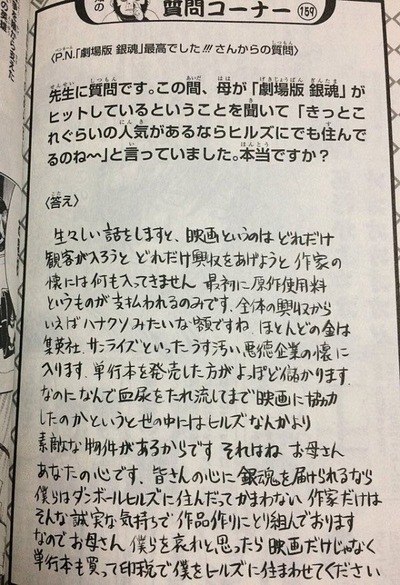 質問コーナー 159
〈P.N.「劇場版 銀魂」最高でした!!! さんからの質問〉
先生に質問です。この間、母が「劇場版 銀魂」が
ヒットしているということを聞いて「きっとこ
れぐらいの人気があるならヒルズにでも住んで
るのね〜」と言っていました。本当ですか?
〈答え〉
生々しい話をしますと、映画というのは どれだけ
観客が入ろうと どれだけ興収をあげようと 作家の
懐には何も入ってきません 最初に原作使用料
というものが支払われるのみです. 全体の興収から
いえばハナクソみたいな額ですね. ほとんどの金は
集英社. サンライズといったうす汚い悪徳企業の懐に
入ります. 単行本を発売した方がよっぽど儲かります.
なのになんで血尿をたれ流してまで映画に協力
したのかというと世の中にはヒルズなんかより
素敵な物件があるからです それはね お母さん
あなたの心です. 皆さんの心に 銀魂を届けられるなら
僕らはダンボールヒルズに住んだってかまわない 作家だけは
そんな誠実な気持ちで 作品作りにとり組んでおります
なのでお母さん 僕らを哀れと思ったら 映画だけじゃなく
単行本も買って印税で僕をヒルズに住まわせてください